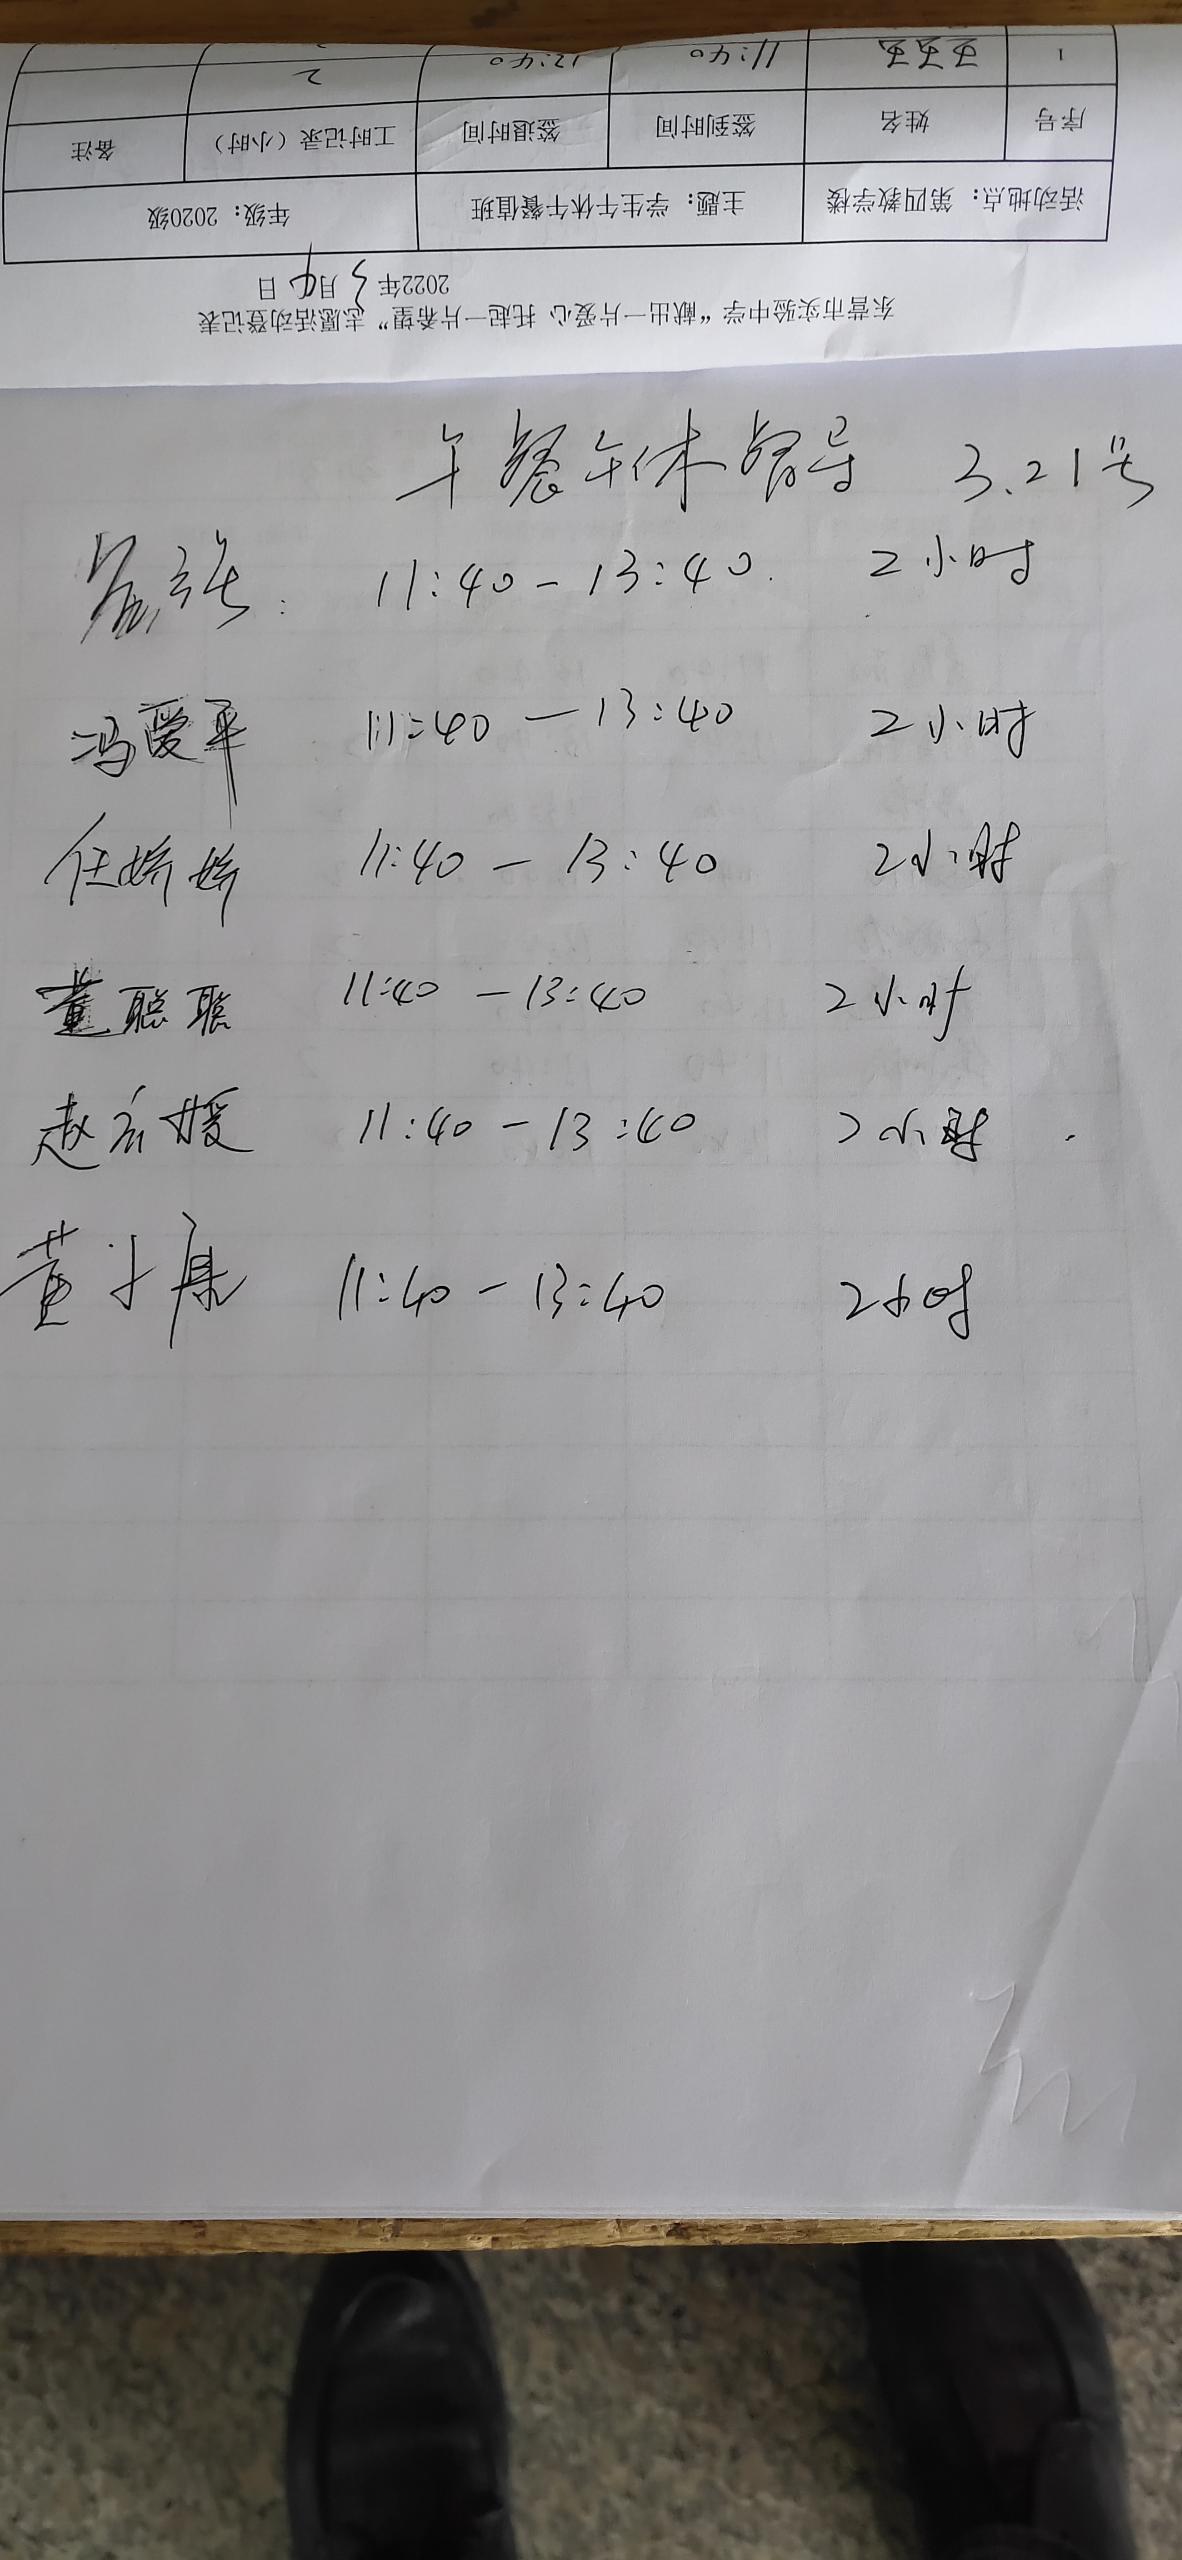 东营市实验中学“献出一片爱心 托起一片希望”志愿活动登记表
2022年3月 日
活动地点：第四教学楼 主题：学生午休午餐值班 年级：2020级
序号 姓名 签到时间 签退时间 工时记录（小时） 备注
1 11:40 2
午餐午休 导 3.21号
11:40-13:40. 2小时
冯爱平 11:40-13:40 2小时
任娇娇 11:40-13:40 2小时
董聪聪 11:40-13:40 2小时
赵 媛 11:40-13:40 2小时
黄 11:40-13:40 2小时